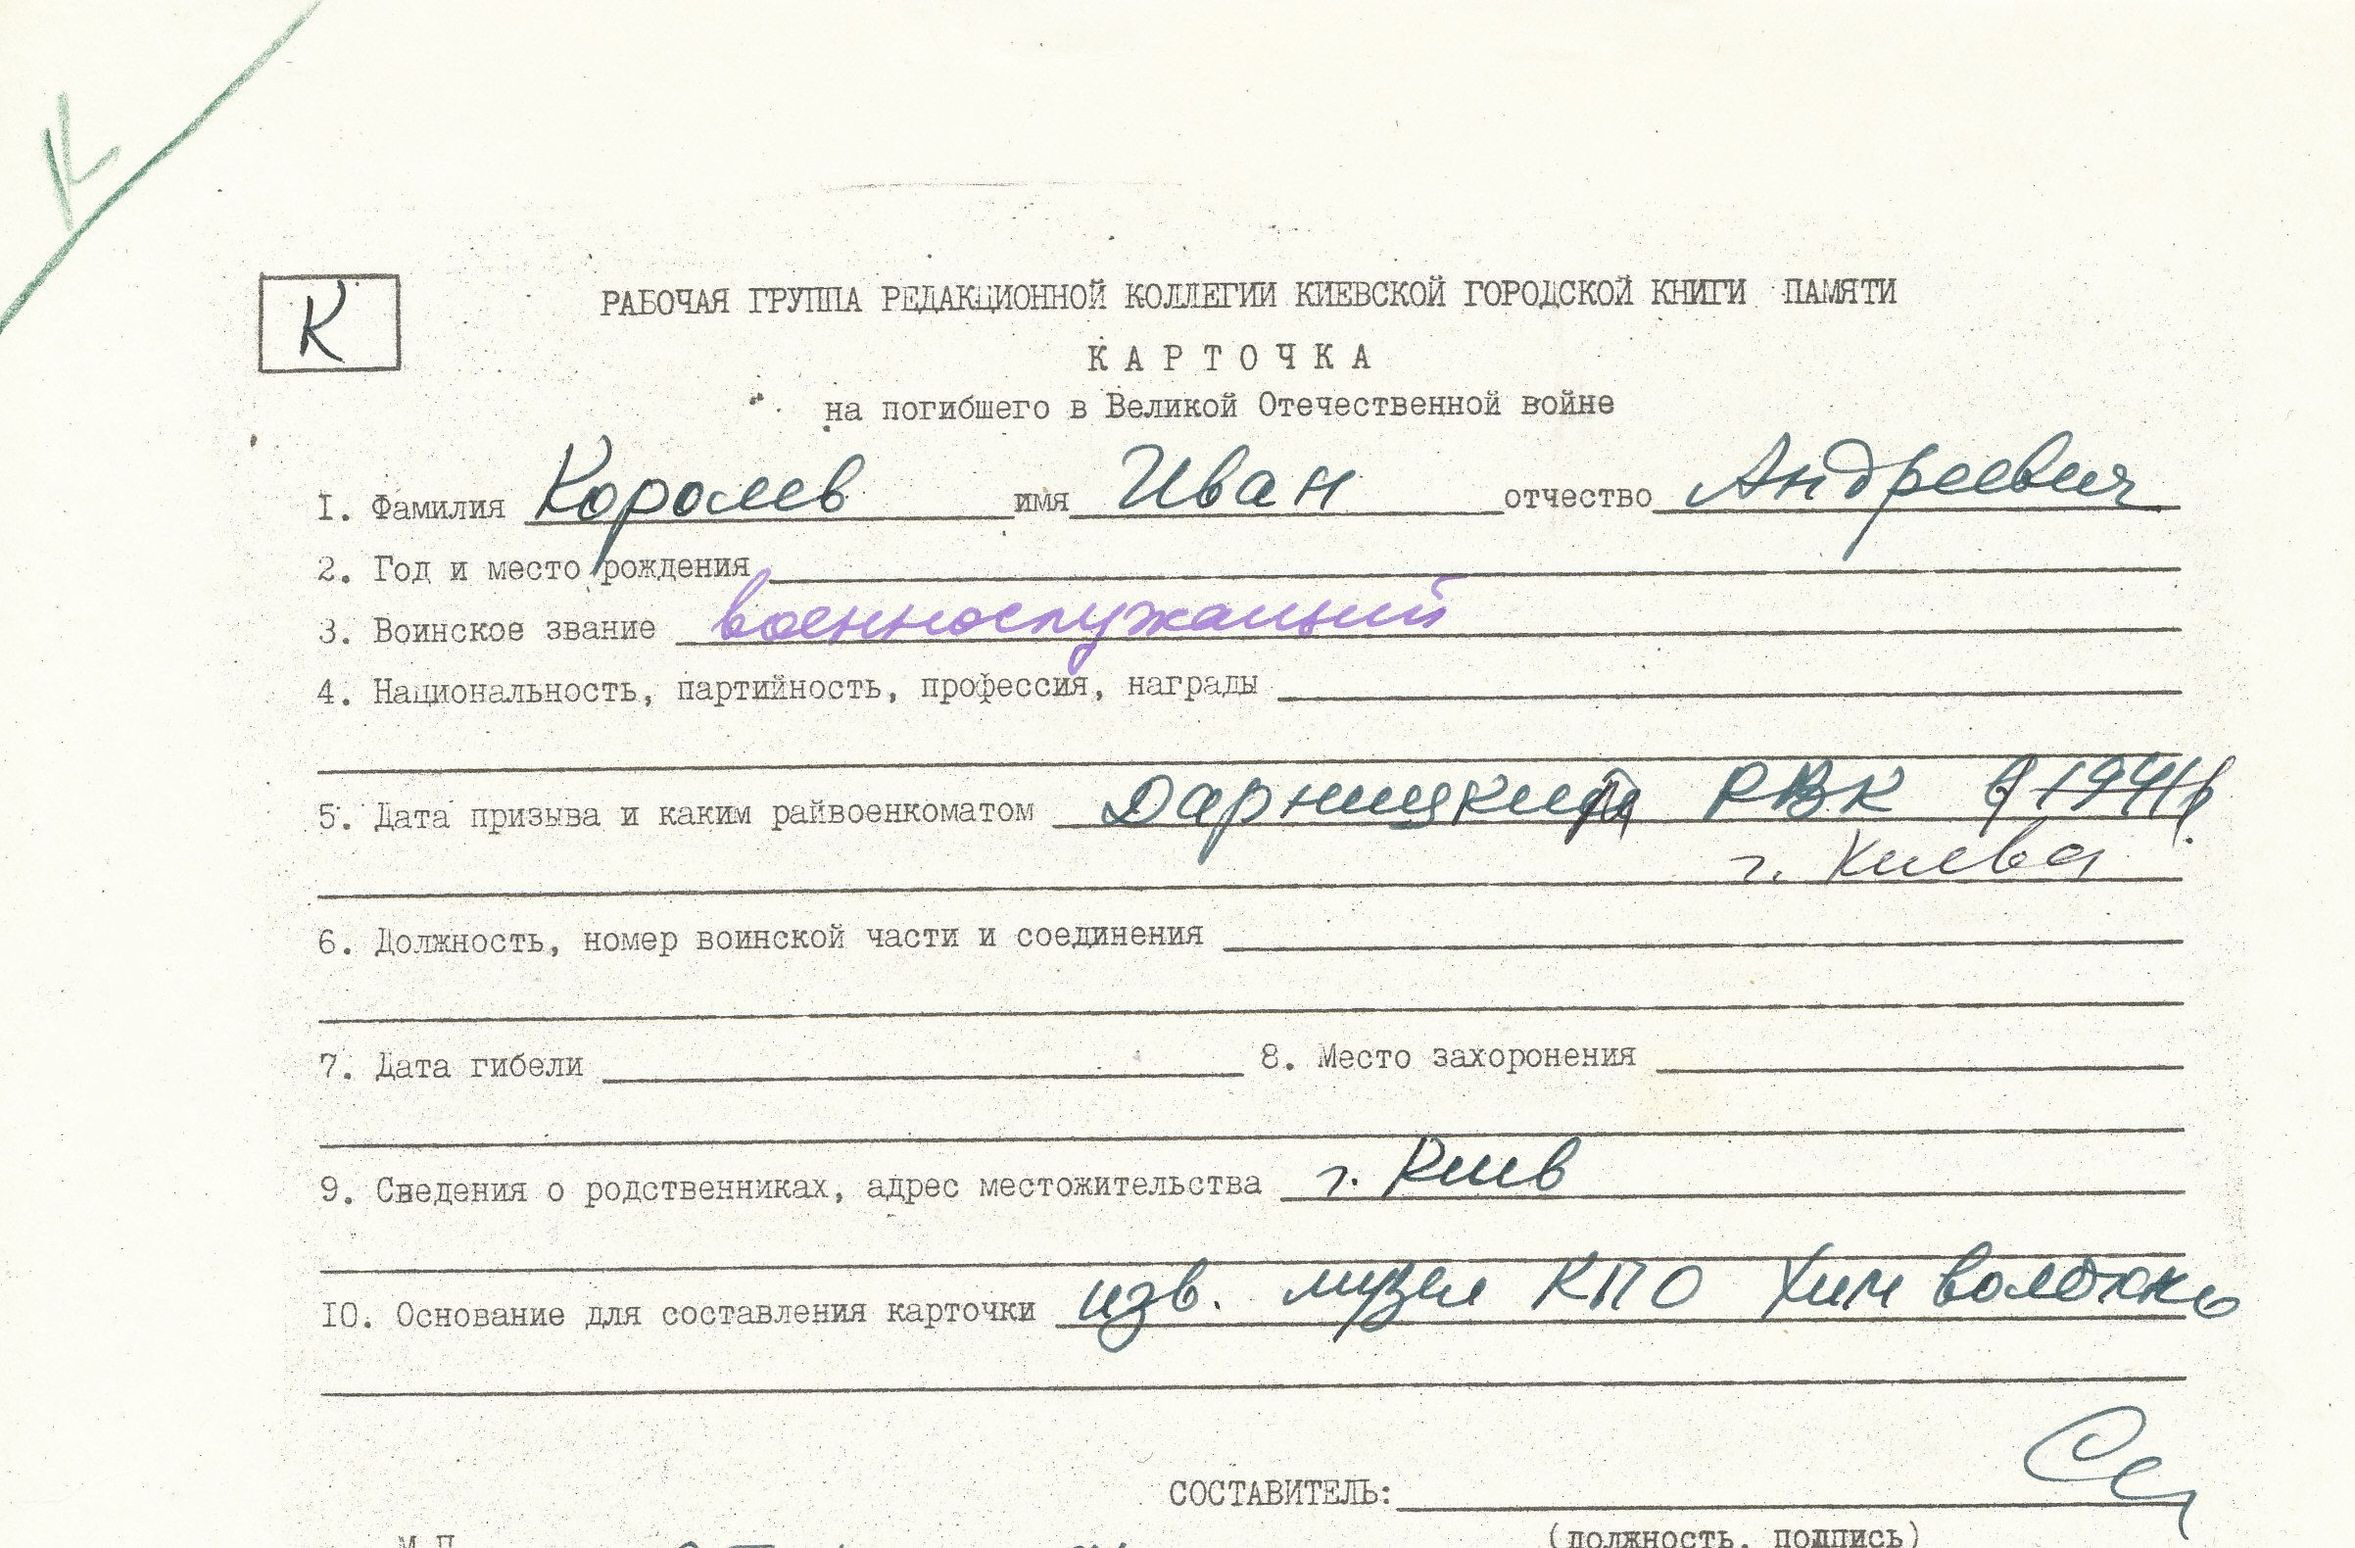 К
К
РАБОЧАЯ ГРУППА РЕДАКЦИОННОЙ КОЛЛЕГИИ КИЕВСКОЙ ГОРОДСКОЙ КНИГИ ПАМЯТИ
КАРТОЧКА
на погибшего в Великой Отечественной войне
1. Фамилия Королев имя Иван отчество Андреевич
2. Год и место рождения
3. Воинское звание военнослужащий
4. Национальность, партийность, профессия, награды
5. Дата призыва и каким райвоенкоматом Дарницким РВК 1941
г. Киева
6. Должность, номер воинской части и соединения
7. Дата гибели 8. Место захоронения
9. Сведения о родственниках, адрес местожительства г. Киев
10. Основание для составления карточки изв. музея КПО Химволокно
СОСТАВИТЕЛЬ:
(должность, подпись)
М.П.